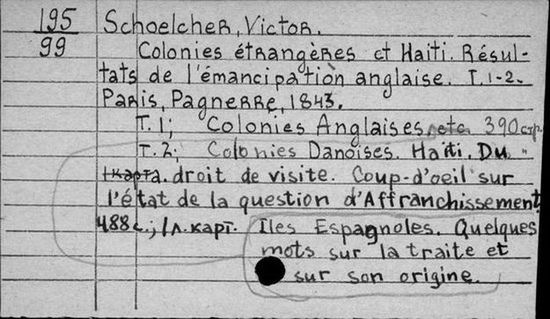 195 Schoelcher, Victor.
99 Colonies étrangères et Haiti. Résul-
tats de l'émancipation anglaise. T.1-2.
Paris, Pagnerre, 1843.
T.1; Colonies Anglaises 390 стр.
T.2; Colonies Danoises. Haiti. Du
droit de visite. Coup-d'oeil sur
l'état de la question d'Affranchissement
488 с.; 1 л. карт. Iles Espagnoles. Quelques
mots sur la traite et
sur son origine.